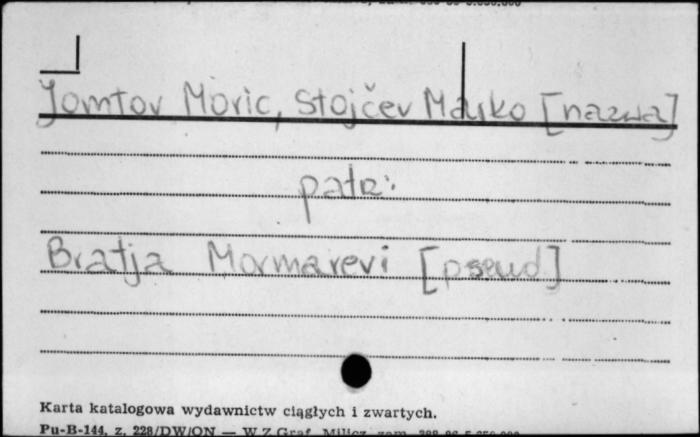 Jomtov Moric, Stojčev Marko [nazwa]
patrz:
Bratja Mormarevi [pseud.]
Karta katalogowa wydawnictw ciągłych i zwartych.
Pu-B-144, z. 228/DW/ON — W.Z.Graf. Milicz, zam.